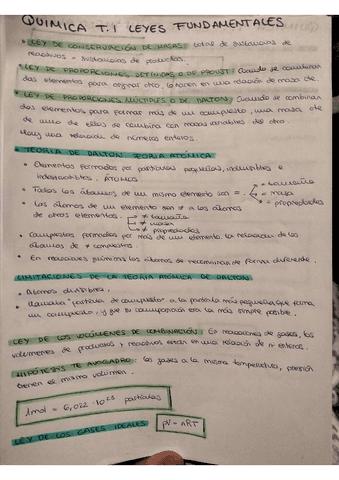 QUIMICA T.1 LEYES FUNDAMENTALES
• LEY DE CONSERVACIÓN DE MASAS: total de sustancias de
reactivos = sustancias de productos.
• LEY DE PROPORCIONES DEFINIDAS O DE PROUST: Cuando se combinan
dos elementos para originar otro, lo hacen en una relación de masa cte.
• LEY DE PROPORCIONES MÚLTIPLES O DE DALTON: Cuando se combinan
dos elementos para formar más de un compuesto, una masa cte
de uno de ellos se combina con masas variables del otro.
Hay una relación de números enteros.
• TEORÍA DE DALTON. TEORÍA ATÓMICA
• Elementos formados por partículas pequeñas, indivisibles e
indestructibles. ÁTOMOS
• Todos los átomos de un mismo elemento son = = tamaño
= masa
= propiedades
• Los átomos de un elemento son ≠ a los átomos
de otros elementos. ≠ tamaño
≠ masa
≠ propiedades
• Compuestos formados por más de un elemento. La relación de los
átomos de ≠ compuestos.
• En reacciones químicas los átomos se recombinan de forma diferente.
LIMITACIONES DE LA TEORÍA ATÓMICA DE DALTON
• Átomos divisibles.
• Llamaba "partícula de compuesto" a la partícula más pequeña que forma
un compuesto, y que su composición era la más simple posible.
LEY DE LOS VOLÚMENES DE COMBINACIÓN: En reacciones de gases, los
volúmenes de productos y reactivos están en una relación de nº enteros.
HIPÓTESIS DE AVOGADRO: los gases a la misma temperatura, presión
tienen el mismo volumen.
1mol = 6,022 · 10²³ partículas
LEY DE LOS GASES IDEALES PV = nRT